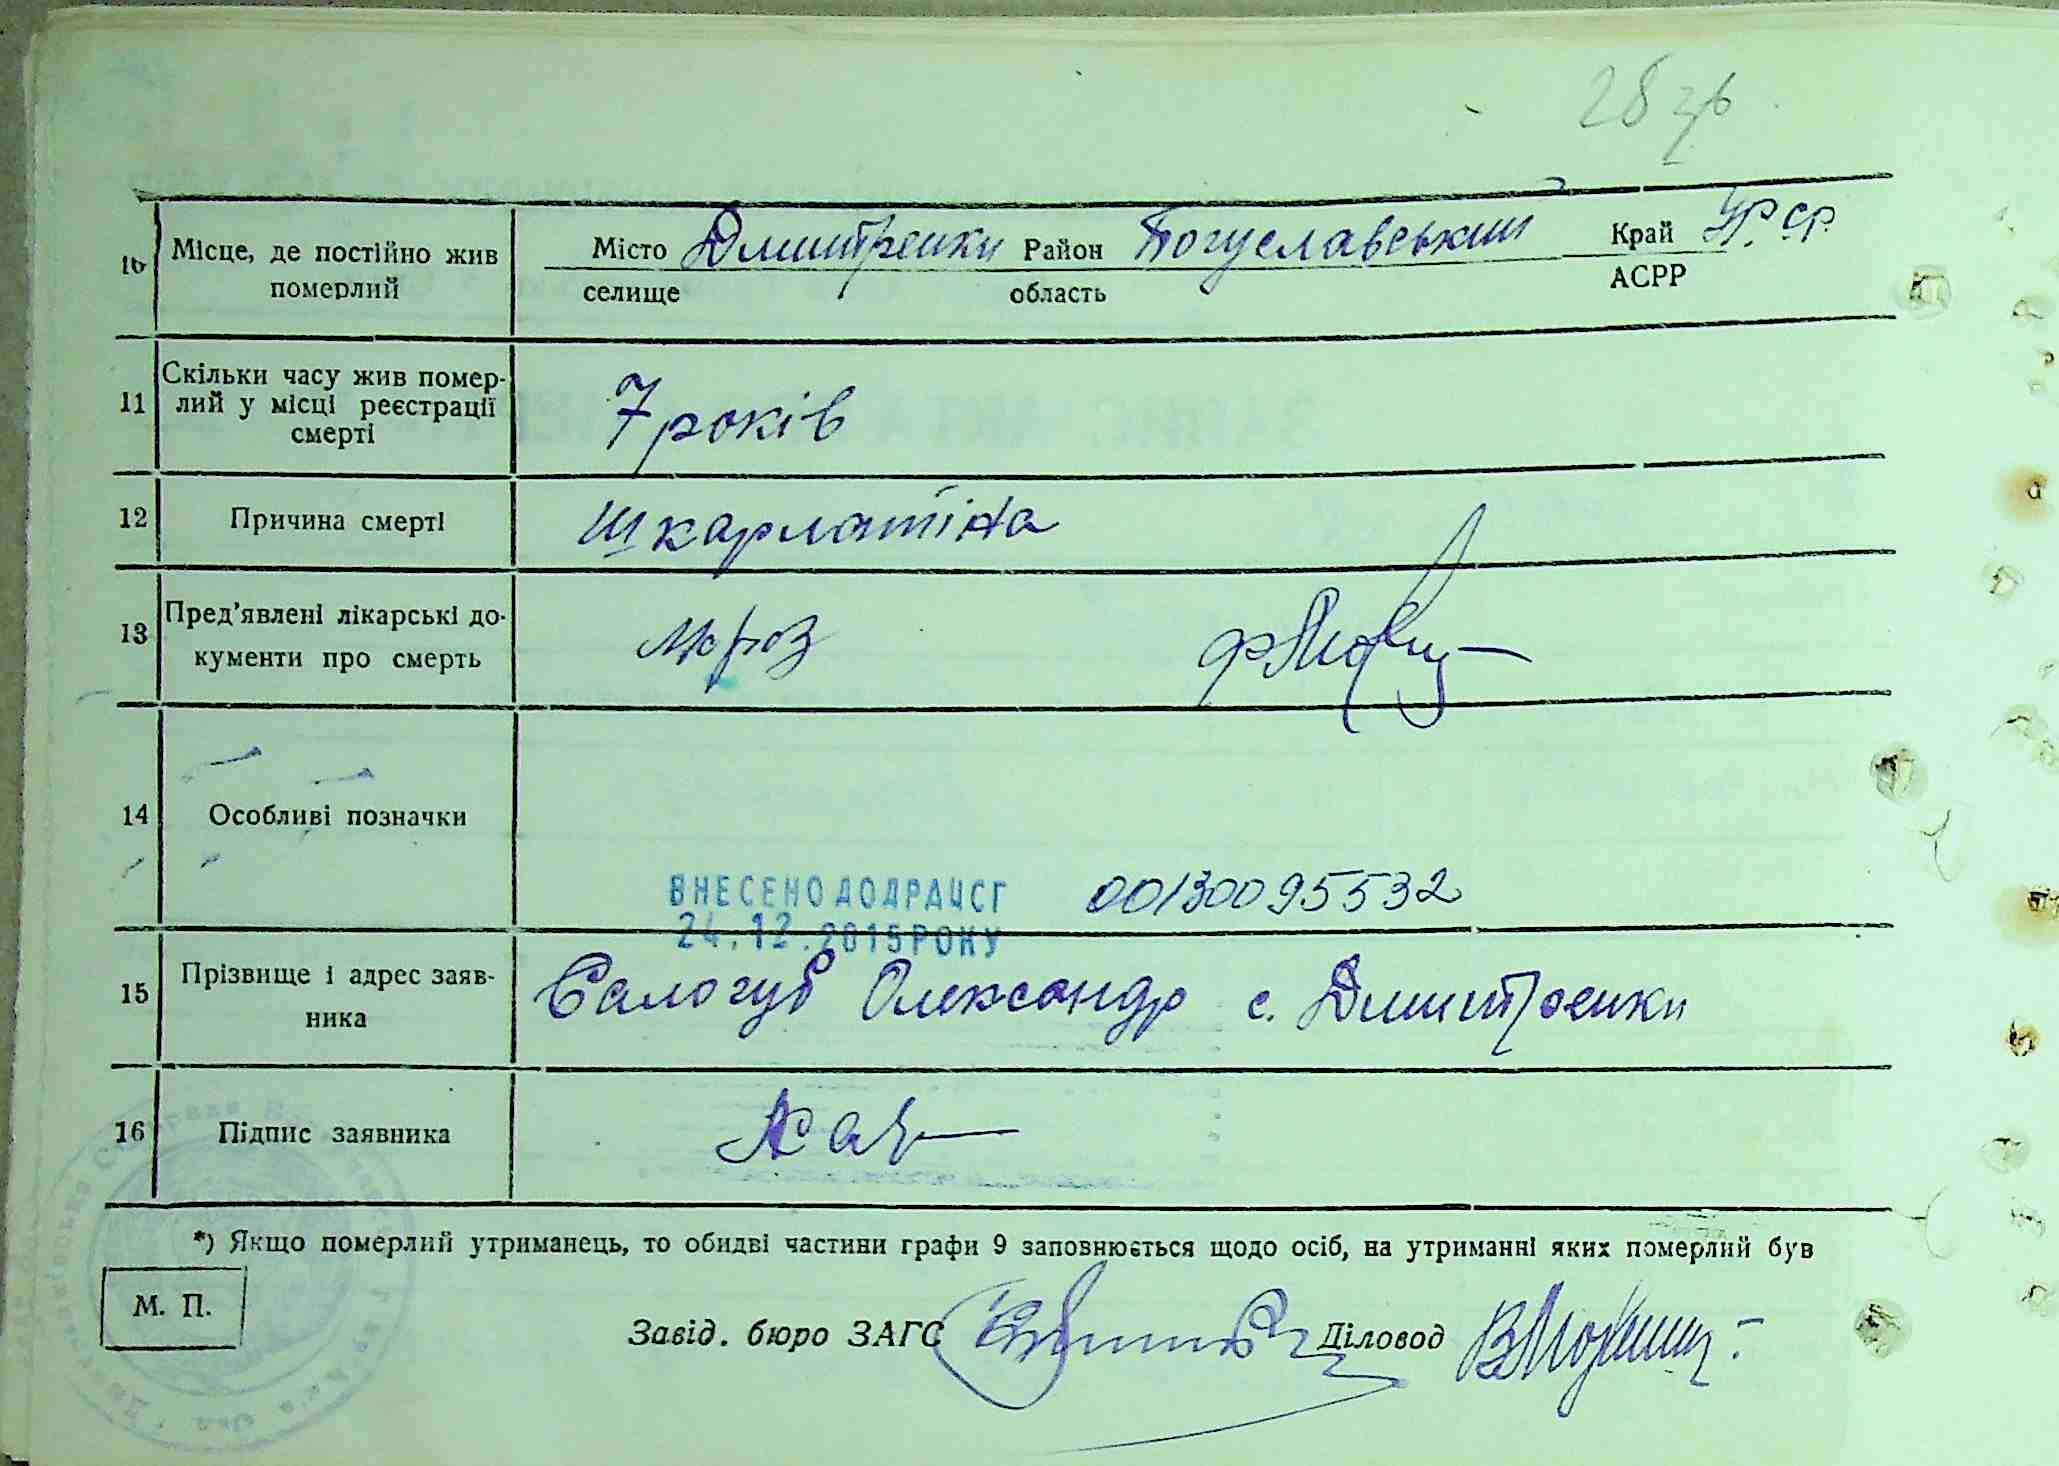 28 зв
10 Місце, де постійно жив померлий
Місто селище Дмитренки Район область Богуславський Край АСРР УРСР
11 Скільки часу жив помер-
лий у місці реєстрації
смерті
7 років
12 Причина смерті
Шкарлатіна
13 Пред'явлені лікарські до-
кументи про смерть
Мороз
14 Особливі позначки
ВНЕСЕНО ДО ДРАЦСГ 00130095532
24.12.2015 РОКУ
15 Прізвище і адрес заяв-
ника
Салогуб Олександр с. Дмитренки
16 Підпис заявника
*) Якщо померлий утриманець, то обидві частини графи 9 заповнюється щодо осіб, на утриманні яких померлий був
М. П.
Завід. бюро ЗАГС Діловод